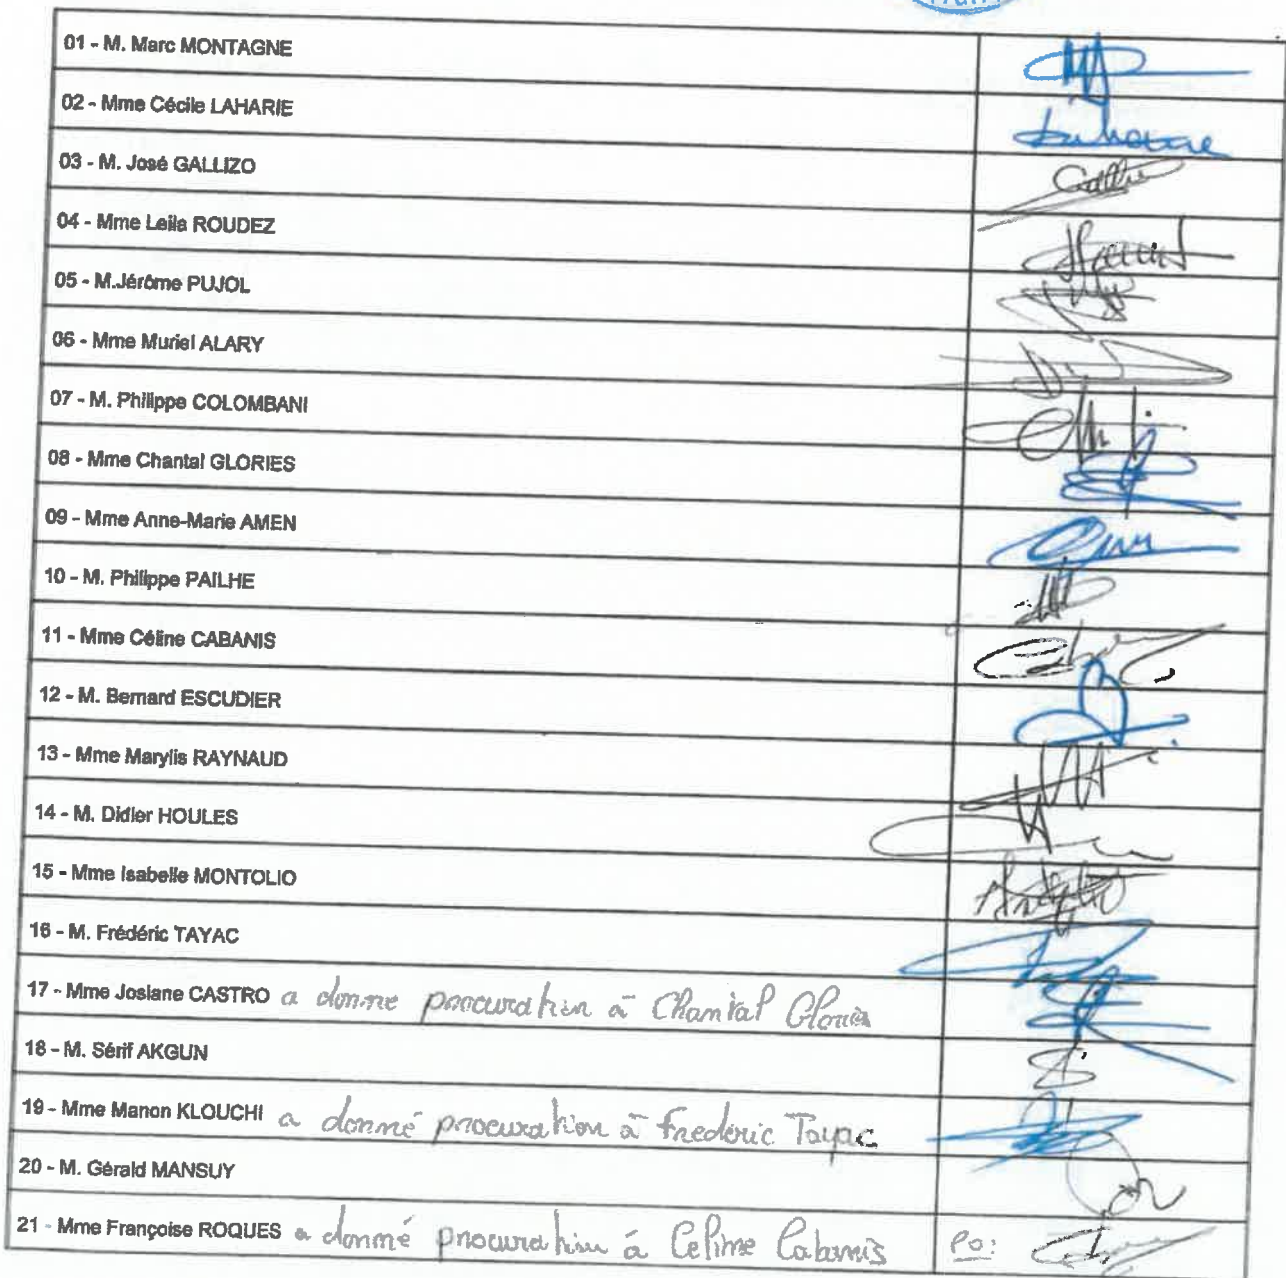 01 - M. Marc MONTAGNE
02 - Mme Cécile LAHARIE
03 - M. José GALLIZO
04 - Mme Leila ROUDEZ
05 - M.Jérôme PUJOL
06 - Mme Muriel ALARY
07 - M. Philippe COLOMBANI
08 - Mme Chantal GLORIES
09 - Mme Anne-Marie AMEN
10 - M. Philippe PAILHE
11 - Mme Céline CABANIS
12 - M. Bernard ESCUDIER
13 - Mme Marylis RAYNAUD
14 - M. Didier HOULES
15 - Mme Isabelle MONTOLIO
16 - M. Frédéric TAYAC
17 - Mme Josiane CASTRO a donné procuration à Chantal Glories
18 - M. Sérif AKGUN
19 - Mme Manon KLOUCHI a donné procuration à Frédéric Tayac
20 - M. Gérald MANSUY
21 - Mme Françoise ROQUES a donné procuration à Céline Cabanis Po: